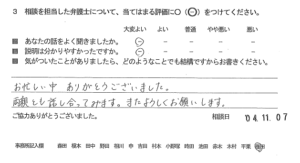 3 相談を担当した弁護士について、当てはまる評価に○(㊀)をつけてください。
大変よい よい 普通 やや悪い 悪い
■ あなたの話をよく聞きましたか。
■ 説明は分かりやすかったですか。
■ 気がついたことがありましたら、どのようなことでも結構ですからお書きください。
お忙しい中 ありがとうございました。
両親とも話し合ってみます。またよろしくお願いします。
ご協力ありがとうございました。
相談日 '04.11.07
事務局記入欄